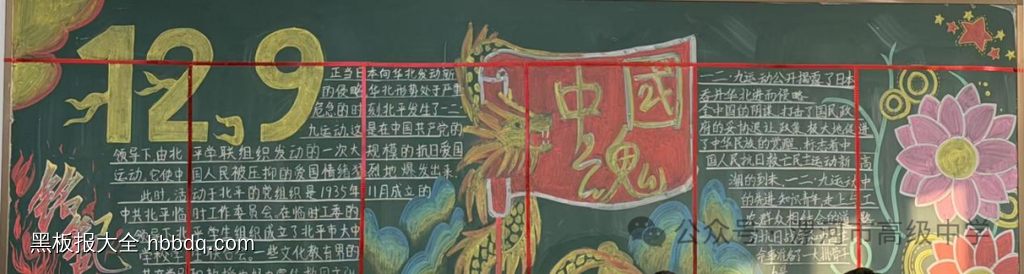 12.9
正当日本向华北发动新
的侵略 华北形势处于严重
危急的时刻北平发生了一二
九运动 这是在中国共产党的
领导下由北平学联组织发动的一次大规模的抗日爱国
运动,它使中国人民被压抑的爱国情绪猛烈地爆发出来
此时,活动于北平的党组织是1935年11月成立的
中共北平临时工作委员会,在临时工委的
领导下北平学生组织成立了北平市大中
学校学生联合会。一些文化教育界的
铭记
中国
魂
一二·九运动公开揭露了日本
吞并华北进而侵略
全中国的阴谋,打击了国民政
府的妥协退让政策,极大地促进
了中华民族的觉醒,标志着中
国人民抗日救亡民主运动新高
潮的到来,一二·九运动中
的先进知识青年走上
与群众相结合的道路
黑板报大全 hbbdq.com
公众号·漯河市高级中学